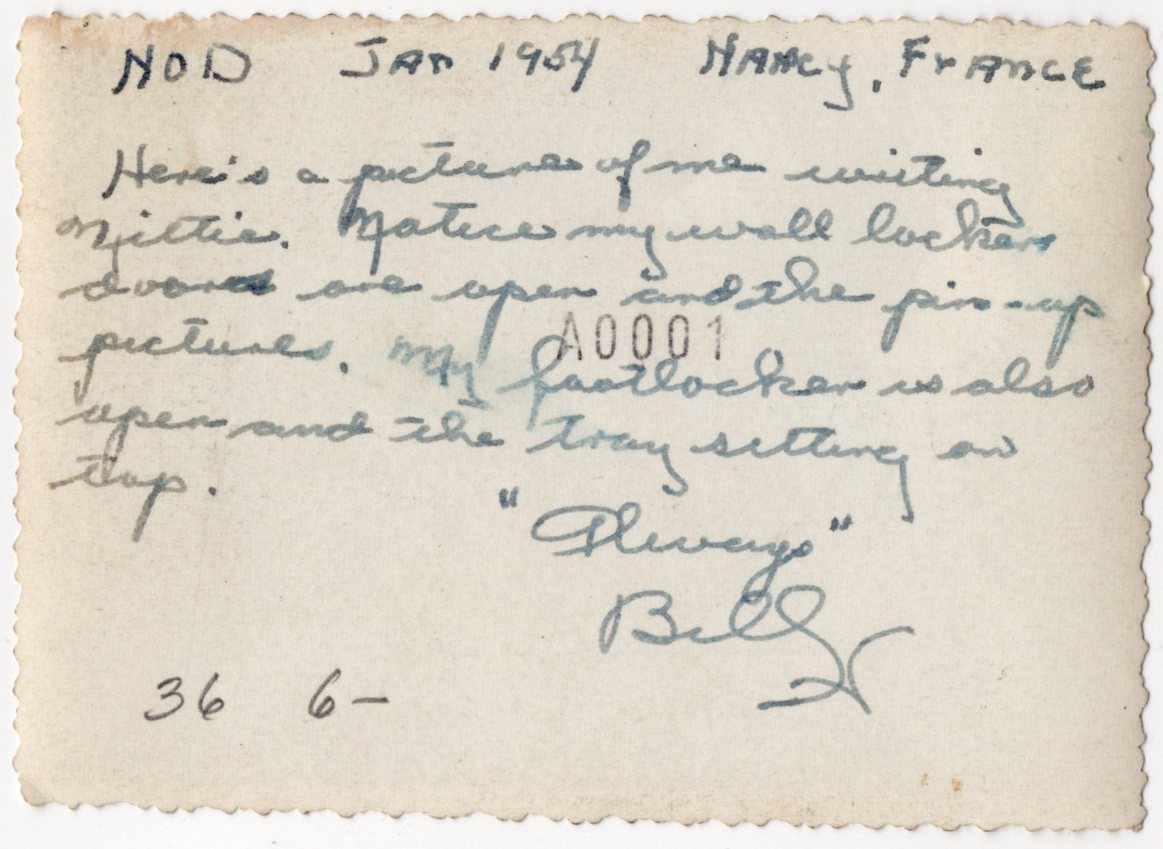 NOD Jan 1954 Nancy, France
Here's a picture of me writing
Mittie. Notice my wall locker
doors are open and the pin-up
pictures. My footlocker is also
A0001
open and the tray setting on
top.
"Always"
Billy
36 6-